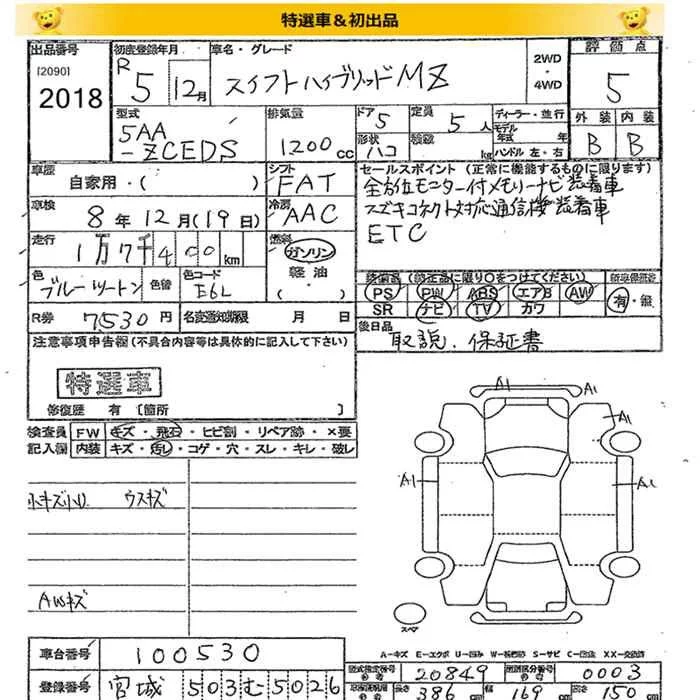 特選車&初出品
出品番号
[2090]
2018
初度登録年月
R 5 12月
車名・グレード
スイフトハイブリッドMZ
2WD・4WD
評価点
5
型式
5AA-ZCEDS
排気量
1200cc
ドア 5
形状 ハコ
定員 5人
積載 kg
ディーラー・並行
モデル年式 年
ハンドル 左・右
外装 内装
B B
車歴
自家用・( )
シフト
FAT
車検
8年12月(19日)
冷房
AAC
走行
1万7千400km
燃料
ガソリン
軽油
・( )
色
ブルーツートン
色替
色コード
E6L
R券 7530円
名変通知期限 月 日
セールスポイント(正常に機能するものに限ります)
全方位モニター付メモリーナビ装着車
スズキコネクト対応通信機装着車
ETC
装備品(純正品に限り○をつけてください)
PS PW ABS エアB AW
SR ナビ TV カワ
有・無
後日品
取説.保証書
注意事項申告欄(不具合内容等は具体的に記入して下さい)
特選車
修復歴 有 [箇所 ]
検査員記入欄
FW キズ・飛石・ヒビ割・リペア跡・×要
内装 キズ・汚レ・コゲ・穴・スレ・キレ・破レ
小キズ小U ウスキズ
AWキズ
A1 A1
A1
A1 A1
スペア
A-キズ E-エクボ U-凹み W-板金跡 S-サビ C-腐食 XX-交換済
車台番号 100530
登録番号 宮城 503む5026
型式指定番号 20849
類別区分番号 0003
長さ 386 cm 幅 169 cm 高さ 15 cm